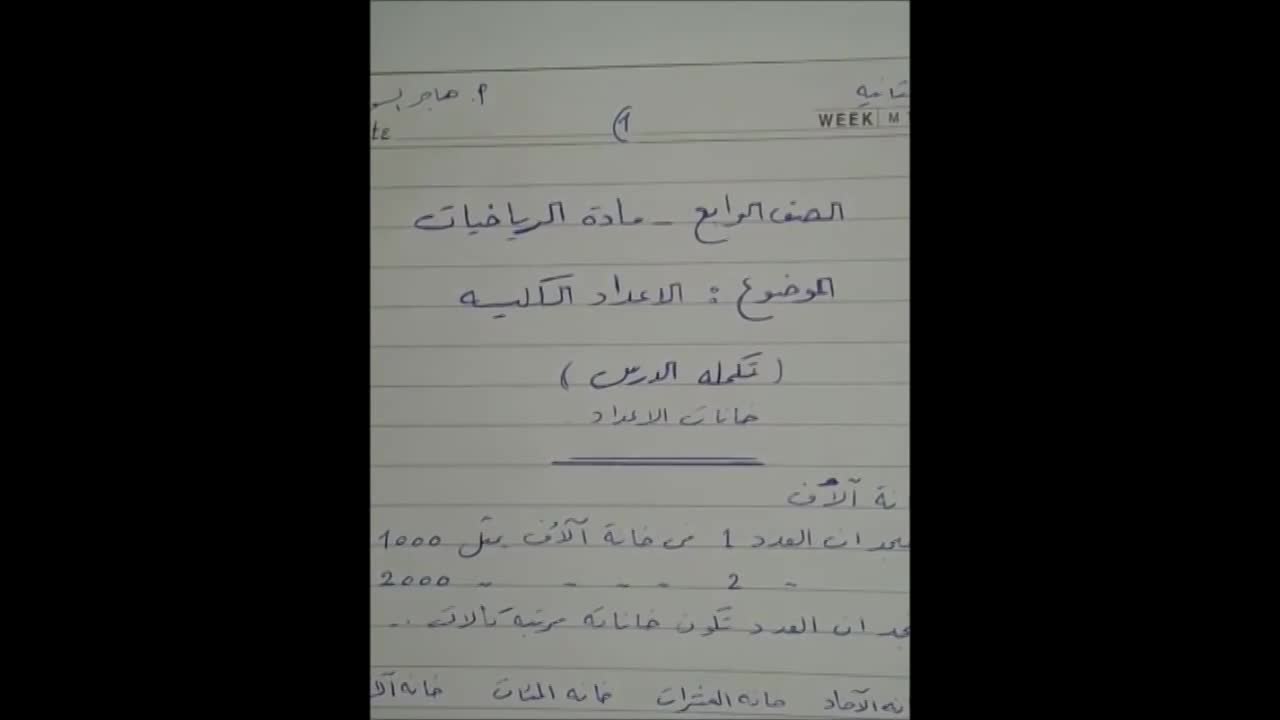 أ. هاجر
WEEK M
1
الصف الرابع - مادة الرياضيات
الموضوع : الاعداد الكليه
( تكمله الدرس )
خانات الاعداد
نة آلاف
نجد ان العدد 1 في خانة آلاف يمثل 1000
〃 2 〃 〃 〃 〃 2000
نجد ان العدد تكون خاناته مرتبة كالات ..
نه الآحاد خانه العشرات خانه المئات خانه آلا